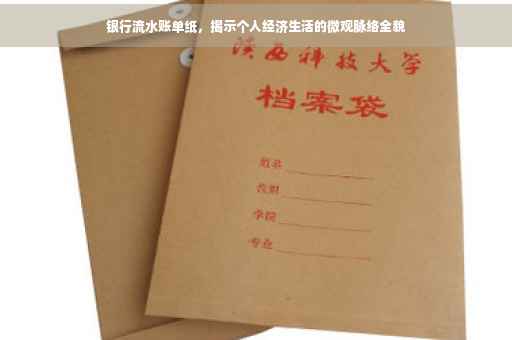 银行流水账单纸，揭示个人经济生活的微观脉络全貌
陕西科技大学
档案袋
姓名
学院
专业